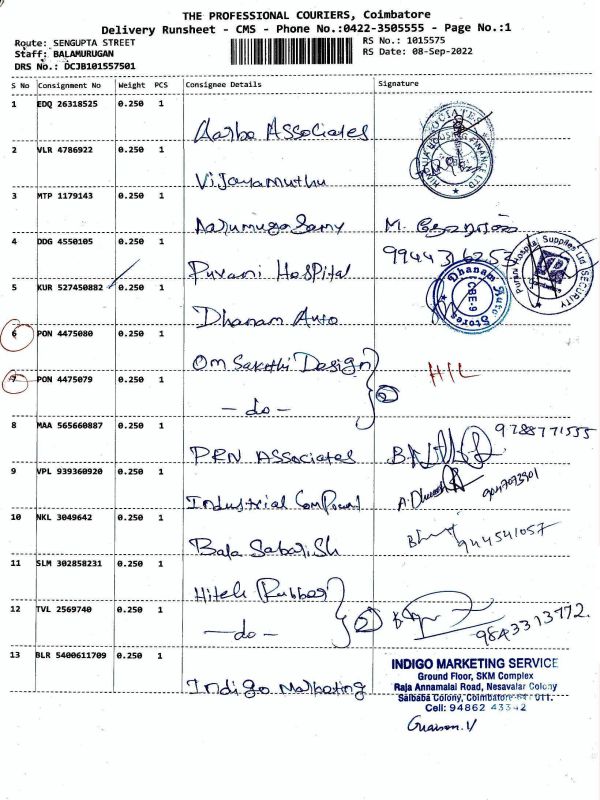 THE PROFESSIONAL COURIERS, Coimbatore
Delivery Runsheet - CMS - Phone No.:0422-3505555 - Page No.:1
Route: SENGUPTA STREET
RS No.: 1015575
Staff: BALAMURUGAN
RS Date: 08-Sep-2022
DRS No.: DCJB101557501
S No Consignment No Weight PCS Consignee Details Signature
1 EDQ 26318525 0.250 1
Aarba Associates
2 VLR 4786922 0.250 1
Vijayamuthu
3 MTP 1179143 0.250 1
Aarumuga Samy M.
4 DDG 4550105 0.250 1
Puvani Hospital
5 KUR 527450882 0.250 1
Dhanam Auto
Dhanam Auto Stores CBE-9
6 PON 4475080 0.250 1
Om Sakthi Design
7 PON 4475079 0.250 1
H/L
- do - 2
8 MAA 565660887 0.250 1
9788771555
PRN Associates
9 VPL 939360920 0.250 1
Industrial Compound
10 NKL 3049642 0.250 1
944541057
Bala Sabarish
11 SLM 302858231 0.250 1
Hitech Rubber
12 TVL 2569740 0.250 1
- do - 2
9843313772.
13 BLR 5400611709 0.250 1
Indigo Marketing
INDIGO MARKETING SERVICE
Ground Floor, SKM Complex
Raja Annamalai Road, Nesavalar Colony
Saibaba Colony, Coimbatore-641 011.
Cell: 94862 43342